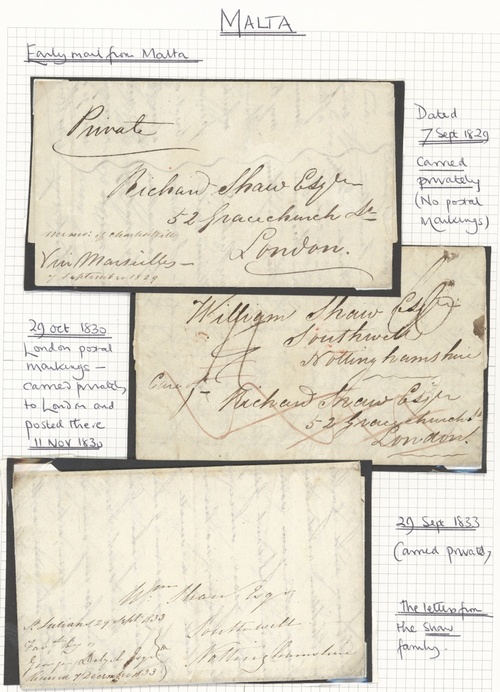 MALTA
Early mail from Malta
Private
Richard Shaw Esqre
52 Gracechurch St
London.
Via Marseilles -
7 September 1829
Dated
7 Sept 1829
Carried
privately
(No postal
Markings)
29 Oct 1830
London postal
markings -
carried privately
to London and
posted there
11 Nov 1830
William Shaw Esqre
Southwell
Nottinghamshire
Care of
Richard Shaw Esqre
52 Gracechurch St
London.
Wm Shaw Esqr
Southwell
Nottinghamshire
St Julians 29 Sept 1833
George
7 December 1833
29 Sept 1833
Carried privately
The letters from
the Shaw
family.